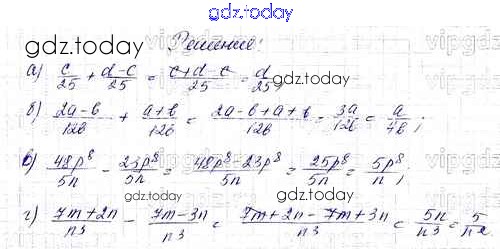 gdz.today
gdz.today Решение:
а) c/25 + d-c/25 = c+d-c/25 = d/25; gdz.today
б) 2a-b/12b + a+b/12b = 2a-b+a+b/12b = 3a/12b = a/4b;
в) 48p⁸/5n - 23p⁸/5n = 48p⁸-23p⁸/5n = 25p⁸/5n = 5p⁸/n;
gdz.today gdz.today
г) 7m+2n/n3 - 7m-3n/n3 = 7m+2n-7m+3n/n3 = 5n/n3 = 5/n2.